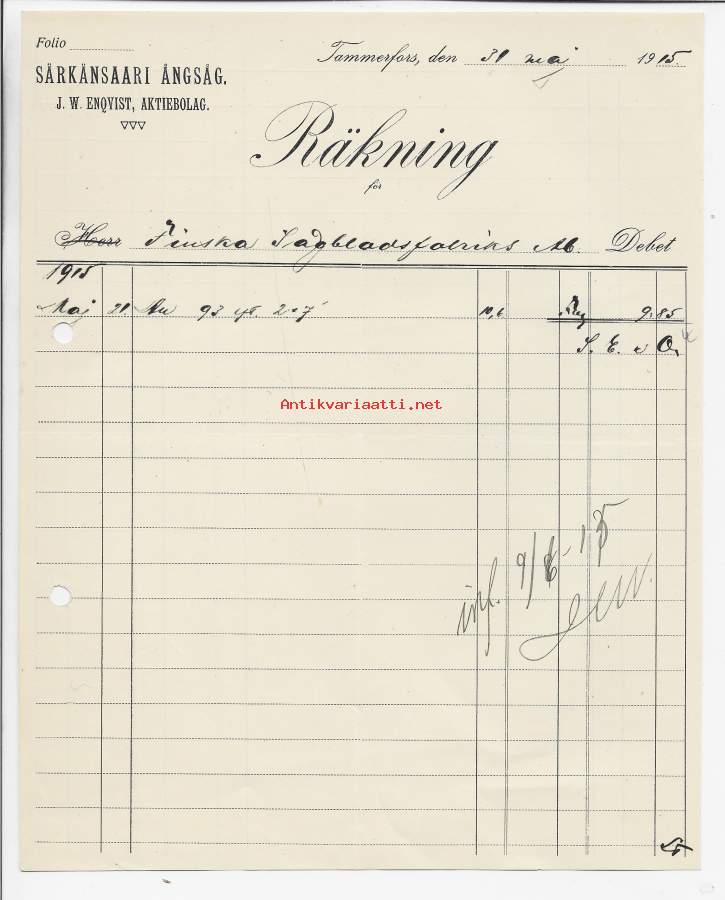 Folio
Tammerfors, den 31 maj 1915.
SÄRKÄNSAARI ÅNGSÅG.
J. W. ENQVIST, AKTIEBOLAG.
Räkning
för
Herr Finska Sågbladsfabriks Ab. Debet
1915
Maj 21 An 93 2 × 7 10,6 9,85
S. E. & O.
Antikvariaatti.net
inf. 9/6-15